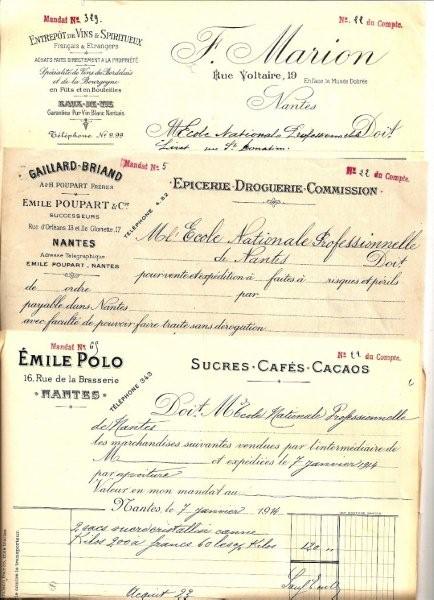 Mandat No. 329.
No. 22 du Compte.
ENTREPÔT DE VINS & SPIRITUEUX
Français & Etrangers
ACHATS FAITS DIRECTEMENT A LA PROPRIÉTÉ
Spécialité de Vins de Bordelais
et de la Bourgogne
en Fûts et en Bouteilles
EAUX-DE-VIE
Garanties Pur Vin Blanc Nantais
Téléphone No 2.99
F. Marion
Rue Voltaire, 19
En face le Musée Dobrée
Nantes
M. Ecole Nationale Professionnelle Doit
Livet rue St
GAILLARD-BRIAND
A & H POUPART FRÈRES
EMILE POUPART & Cie
SUCCESSEURS
Rue d'Orléans, 13 et Ile Gloriette, 17
NANTES
Adresse Télégraphique
EMILE POUPART - NANTES
TÉLÉPHONE 4.82
Mandat No. 5
No. 22 du Compte.
EPICERIE-DROGUERIE-COMMISSION
M l'Ecole Nationale Professionnelle
de Nantes Doit
pour vente et expédition à faites à risques et périls
de ordre par
payable dans Nantes
avec faculté de pouvoir faire traite sans dérogation.
Mandat No. 65
No. 22 du Compte.
ÉMILE POLO
16, Rue de la Brasserie
NANTES
TÉLÉPHONE 343
SUCRES-CAFÉS-CACAOS
Doit M Ecole Nationale Professionnelle
de Nantes
les marchandises suivantes vendues par l'intermédiaire de
M et expédiées le 7 janvier 1914
par voiture
Valeur en mon mandat au
Nantes le 7 janvier 1914.
2 sacs sucre cristallisé canne
Kilos 200 à francs 60 les % Kilos 120 "
Acquit 22